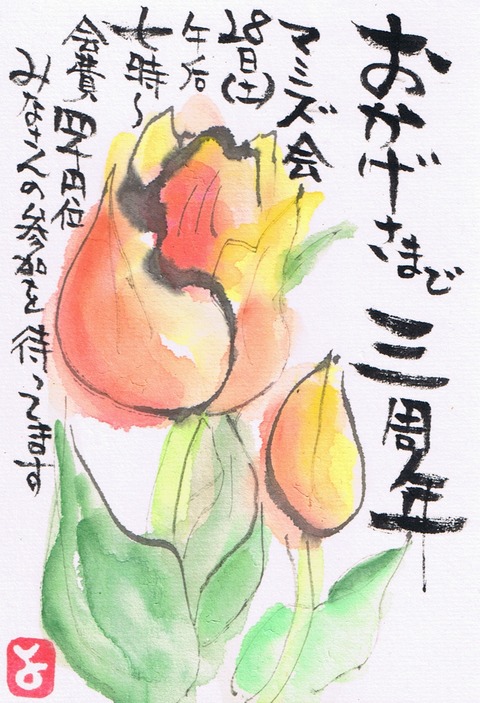 おかげさまで 三周年
マミズ会
28日(土)
午后
七時〜
会費 四千円位
みなさんの参加を待ってます
よ